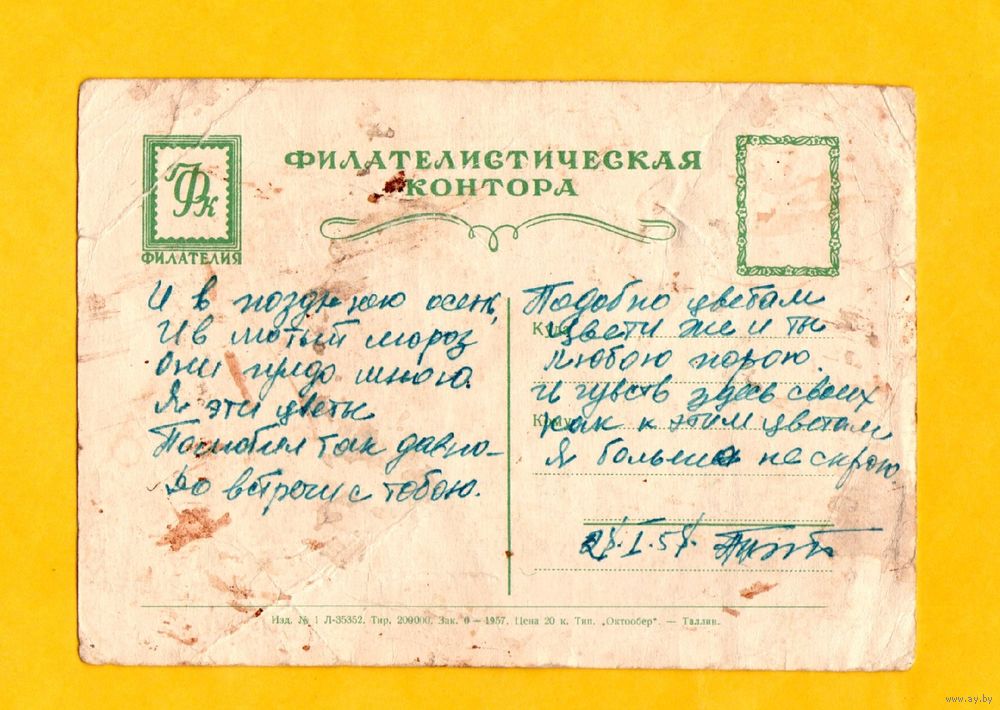 ФК
ФИЛАТЕЛИЯ
ФИЛАТЕЛИСТИЧЕСКАЯ
КОНТОРА
И в позднюю осень,
И в лютый мороз
Они предо мною.
Я эти цветы
Полюбил так давно –
До встречи с тобою.
Подобно цветам
Куда
Цвети же и ты
Любою порою.
И чувств здесь своих
Кому
Как к этим цветам
Я больше не скрою.
I.
Изд. № 1 Л-35352. Тир. 200000. Зак. 6 — 1957. Цена 20 к. Тип. „Октообер“. — Таллин.
www.ay.by